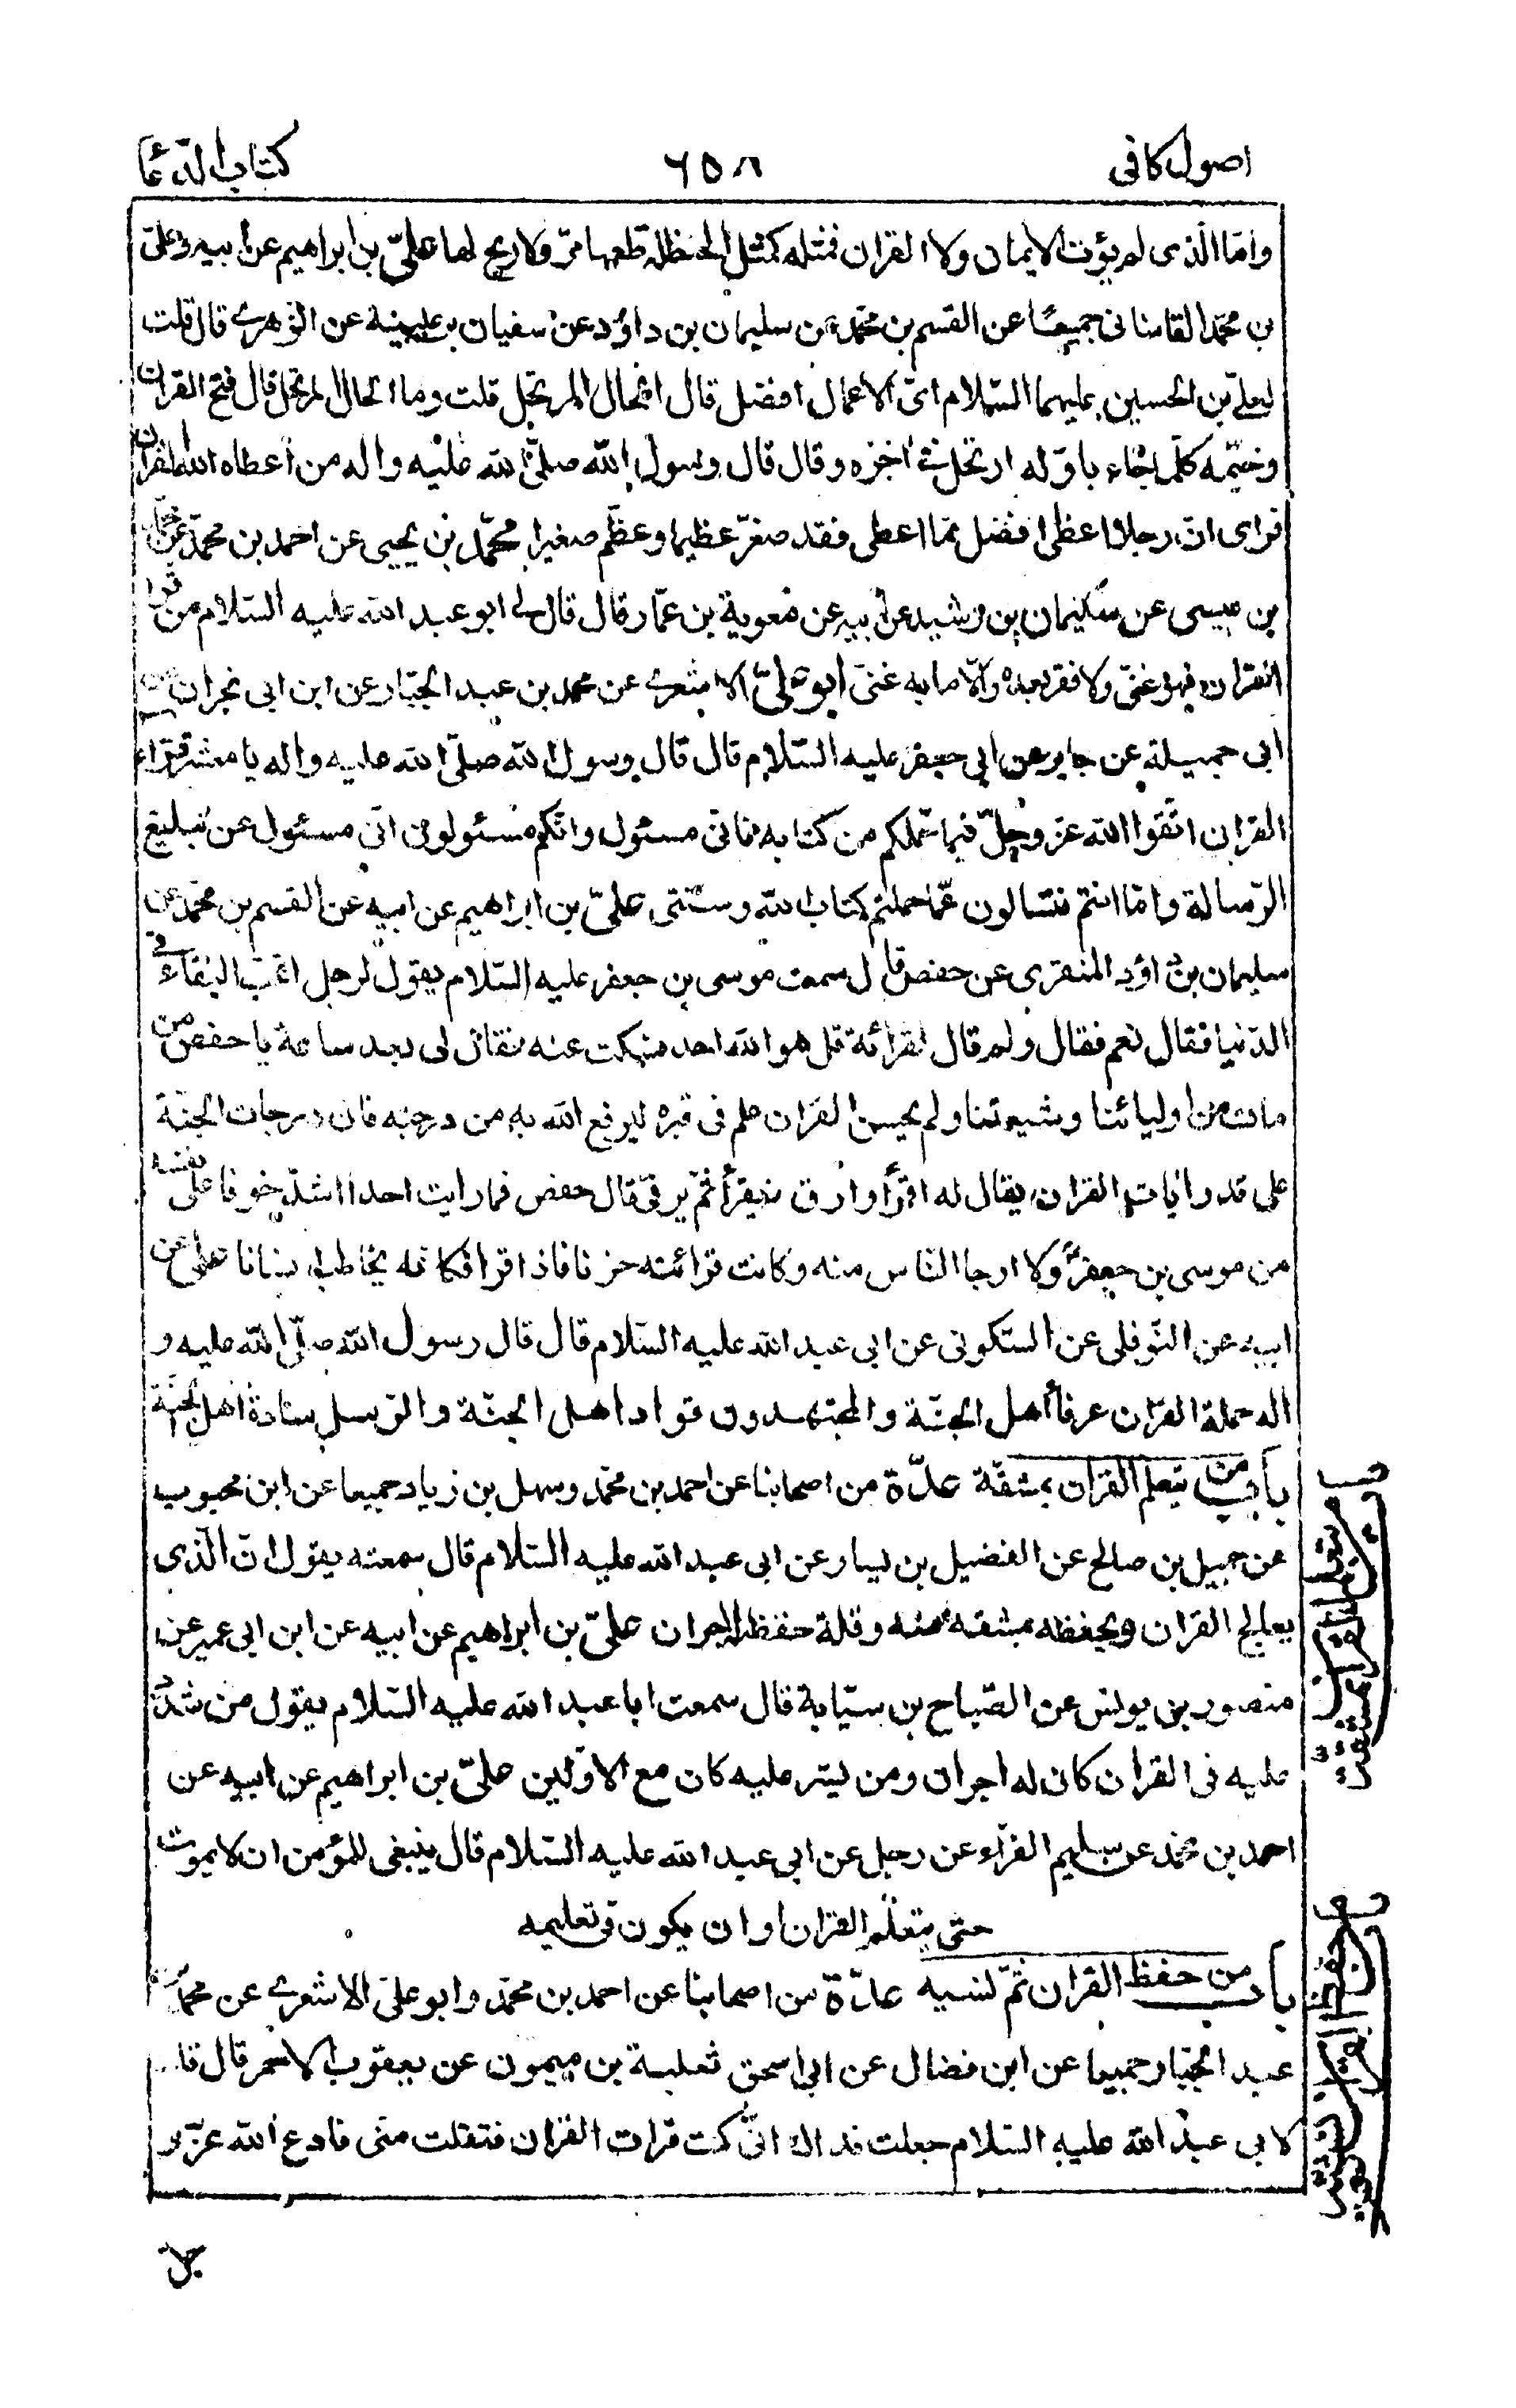 اصول كافى ٦٥٨ كتاب الدّعا
وامّا الّذى لم يؤت الايمان ولا القران فمثله كمثل الحنظلة طعمها مرّ ولا ريح لها علىّ بن ابراهيم عن ابيه وعلى
بن محمّد القاسانى جميعًا عن القسم بن محمّد عن سليمان بن داؤد عن سفيان بن عيينة عن الزّهرى قال قلت
لعلى بن الحسين عليهما السّلام اىّ الاعمال افضل قال الحال المرتحل قلت وما الحال المرتحل قال فتح القران
وختمه كلّما جاء باوّله ارتحل فى اخره وقال قال رسول الله صلّى الله عليه واله من اعطاه الله القران
فراى انّ رجلا اعطى افضل ممّا اعطى فقد صغّر عظيما وعظّم صغيرا محمّد بن يحيى عن احمد بن محمّد عن محمّد
بن عيسى عن سليمان بن رشيد عن ابيه عن معوية بن عمّار قال قال لى ابو عبد الله عليه السّلام من قرا
القران فهو غنىّ ولا فقر بعده والّا ما به غنى ابو علىّ الاشعرى عن محمد بن عبد الجبّار عن ابن ابى نجران عن
ابى جميلة عن جابر عن ابى جعفر عليه السّلام قال قال رسول الله صلّى الله عليه واله يا معشر قرّاء
القران اتّقوا الله عز وجلّ فيما حمّلكم من كتابه فانّى مسئول وانّكم مسئولون انّى مسئول عن تبليغ
الرّسالة وامّا انتم فتسالون عمّا حملتم كتاب الله وسنّتى علىّ بن ابراهيم عن ابيه عن القسم بن محمّد عن
سليمان بن داؤد المنقرى عن حفص قال سمعت موسى بن جعفر عليه السّلام يقول لرجل اتحبّ البقاء فى
الدّنيا فقال نعم فقال ولم قال لقرائة قل هو الله احد فسكت عنه فقال لى بعد ساعة يا حفص من
مات من اوليائنا وشيعتنا ولم يحسن القران علم فى قبره ليرفع الله به من درجته فان درجات الجنّة
على قدر ايات القران يقال له اقرأ وارق فيقرأ ثمّ يرقى قال حفص فما رايت احدا اشدّ خوفا على نفسه
من موسى بن جعفر ولا ارجا النّاس منه وكانت قرائته حزنا فاذا قرا فكانّه يخاطب انسانا على عن
ابيه عن النّوفلى عن السّكونى عن ابى عبد الله عليه السّلام قال قال رسول الله صلّى الله عليه و
اله حملة القران عرفاء اهل الجنّة والمجتهدون قواد اهل الجنّة والرّسل سادة اهل الجنّة
باب من يتعلم القران بمشقّة عدّة من اصحابنا عن احمد بن محمّد وسهل بن زياد جميعا عن ابن محبوب
عن جميل بن صالح عن الفضيل بن يسار عن ابى عبد الله عليه السّلام قال سمعته يقول انّ الّذى
يعالج القران ويحفظه بمشقة منه وقلة حفظ له اجران علىّ بن ابراهيم عن ابيه عن ابن ابى عمير عن
منصور بن يونس عن الصّباح بن سيّابة قال سمعت ابا عبد الله عليه السّلام يقول من شدّد
عليه فى القران كان له اجران ومن يسّر عليه كان مع الاوّلين علىّ بن ابراهيم عن ابيه عن
احمد بن محمّد عن سليم الفرّاء عن رجل عن ابى عبد الله عليه السّلام قال ينبغى للمؤمن ان لا يموت
حتى يتعلّم القران او ان يكون فى تعليمه
باب من حفظ القران ثمّ نسيه عدّة من اصحابنا عن احمد بن محمّد وابو على الاشعرى عن محمّد بن
عبد الجبّار جميعا عن ابن فضال عن ابى اسحق ثعلبة بن ميمون عن يعقوب الاحمر قال قلت
لابى عبد الله عليه السّلام جعلت فداك انّى كنت قرات القران فتفلت منى فادع الله عزّ و
جل